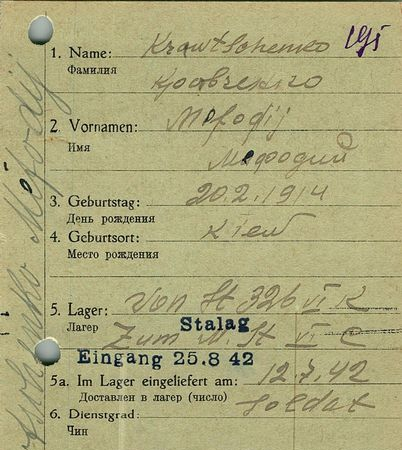 1. Name: Krawtschenko
Фамилия
Кравченко
2. Vornamen: Mefodij
Имя
Мефодий
3. Geburtstag: 20.2.1914
День рождения
4. Geburtsort: Kiew
Место рождения
5. Lager: Von St 326 VI K
Лагер Zum St VI C
Stalag
Eingang 25.8 42
5a. Im Lager eingeliefert am: 12.7.42
Доставлен в лагер (число)
6. Dienstgrad: Soldat
Чин
Mefodij